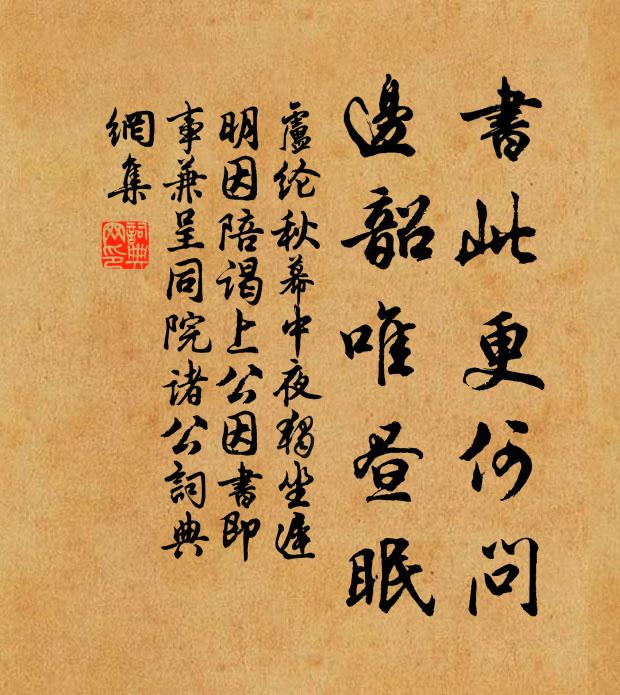 書此更何問
邊韶唯昼眠
盧纶秋幕中夜獨坐遲
明因陪謁上公因書即
事兼呈同院诸公詞典
網集
詞典網印